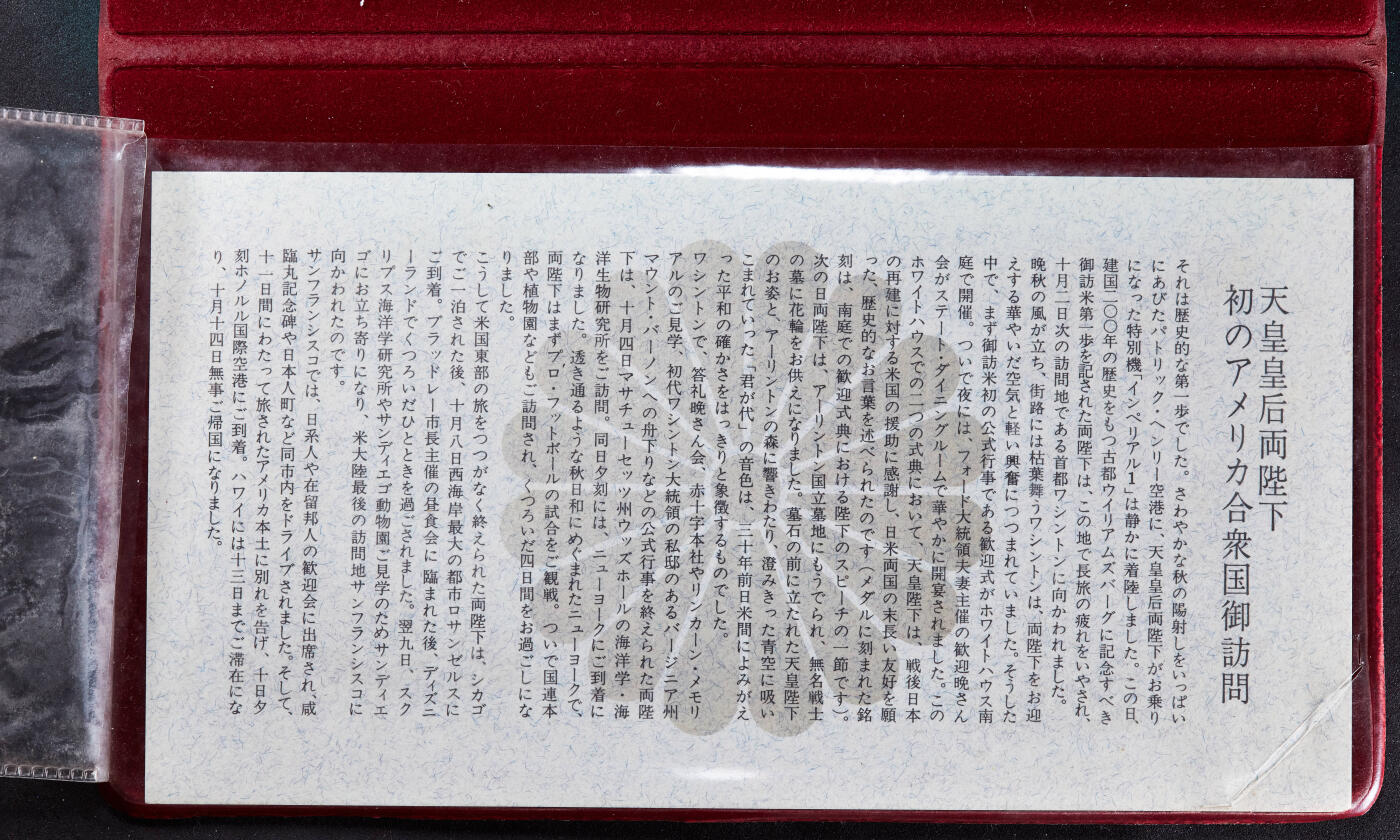 天皇皇后両陛下
初のアメリカ合衆国御訪問
それは歴史的な第一歩でした。さわやかな秋の陽射しをいっぱい
にあびたパトリック・ヘンリー空港に、天皇皇后両陛下がお乗り
になった特別機「インペリアル1」は静かに着陸しました。この日、
建国二〇〇年の歴史をもつ古都ウイリアムズバーグに記念すべき
御訪米第一歩を記された両陛下は、この地で長旅の疲れをいやされ、
十月二日次の訪問地である首都ワシントンに向かわれました。
晩秋の風が立ち、街路には枯葉舞うワシントンは、両陛下をお迎
えする華やいだ空気と軽い興奮につつまれていました。そうした
中で、まず御訪米初の公式行事である歓迎式がホワイトハウス南
庭で開催。ついで夜には、フォード大統領夫妻主催の歓迎晩さん
会がステート・ダイニングルームで華やかに開宴されました。この
ホワイトハウスでの二つの式典において、天皇陛下は、戦後日本
の再建に対する米国の援助に感謝し、日米両国の末長い友好を願
った、歴史的なお言葉を述べられたのです（メダルに刻まれた銘
刻は、南庭での歓迎式典における陛下のスピーチの一節です）。
次の日両陛下は、アーリントン国立墓地にもうでられ、無名戦士
の墓に花輪をお供えになりました。墓石の前に立たれた天皇陛下
のお姿と、アーリントンの森に響きわたり、澄みきった青空に吸い
こまれていった「君が代」の音色は、三十年前日米間によみがえ
った平和の確かさをはっきりと象徴するものでした。
ワシントンで、答礼晩さん会、赤十字本社やリンカーン・メモリ
アルのご見学、初代ワシントン大統領の私邸のあるバージニア州
マウント・バーノンへの舟下りなどの公式行事を終えられた両陛
下は、十月四日マサチューセッツ州ウッズホールの海洋学・海
洋生物研究所をご訪問。同日夕刻には、ニューヨークにご到着に
なりました。透き通るような秋日和にめぐまれたニューヨークで、
両陛下はまずプロ・フットボールの試合をご観戦。ついで国連本
部や植物園などもご訪問され、くつろいだ四日間をお過ごしにな
りました。
こうして米国東部の旅をつつがなく終えられた両陛下は、シカゴ
でご一泊された後、十月八日西海岸最大の都市ロサンゼルスに
ご到着。ブラッドレー市長主催の昼食会に臨まれた後、ディズニ
ーランドでくつろいだひとときを過ごされました。翌九日、スク
リプス海洋学研究所やサンディエゴ動物園ご見学のためサンディエ
ゴにお立ち寄りになり、米大陸最後の訪問地サンフランシスコに
向かわれたのです。
サンフランシスコでは、日系人や在留邦人の歓迎会に出席され、咸
臨丸記念碑や日本人町など同市内をドライブされました。そして、
十一日間にわたって旅されたアメリカ本土に別れを告げ、十日夕
刻ホノルル国際空港にご到着。ハワイには十三日までご滞在にな
り、十月十四日無事ご帰国になりました。